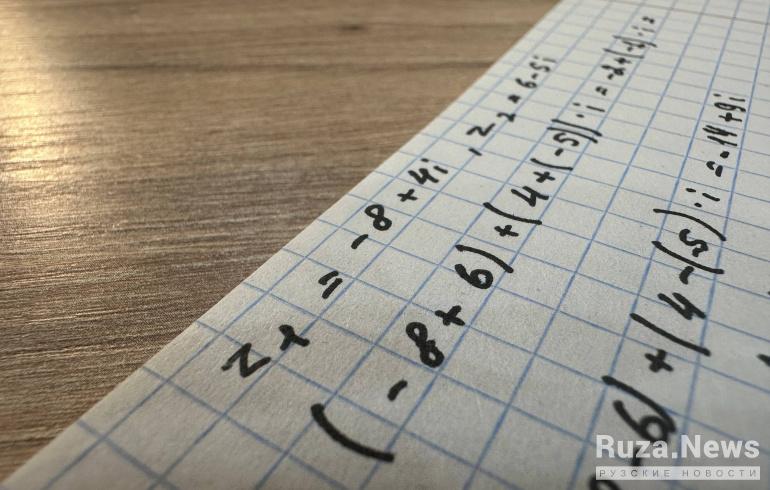 z₁ = -8 + 4i , z₂ = 6-5i
(-8 + 6) + (4+(-5))·i = -2+(-1)·i =
- 6) + (4-(-5)·i = -14+9i
Ruza.News
РУЗСКИЕ НОВОСТИ